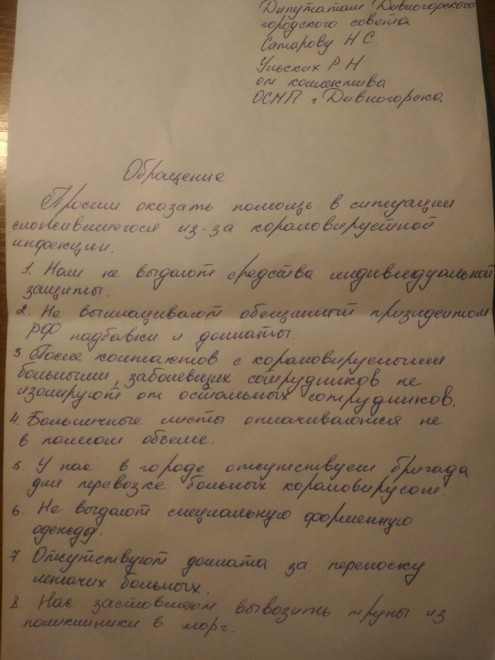 Дипутатам Дивногорского
городского совета
Сатарову Н С
Ульских Р Н
от коллектива
ОСМП г Дивногорска
Обращение
Просим оказать помощь в ситуации
сложившегося из-за корановирустной
инфекции.
1. Нам не выдают средства индивидуальной
защиты.
2. Не выплачивают обещанный призидентом
РФ надбавки и доплаты.
3. После контактов с корановирусными
больными, заболевших сотрудников не
изолируют от остальных сотрудников.
4. Больничные листы оплачиваются не
в полном объеме.
5. У нас в городе отсутствует бригада
для перевозке больных корановирусом.
6. Не выдают специальную форменную
одежду.
7 Отсутствуют доплата за переноску
лежачих больных.
8 Нас заставляют вывозить трупы из
поликлиники в морг.